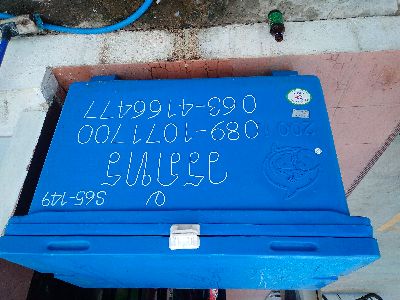 S65-149
วรภัทร
200
089-1071700
063-4166477